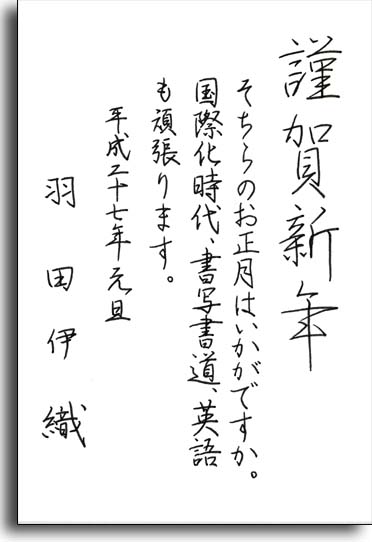 謹賀新年
そちらのお正月はいかがですか。
国際化時代、書写書道、英語
も頑張ります。
平成二十七年元旦
羽田伊織